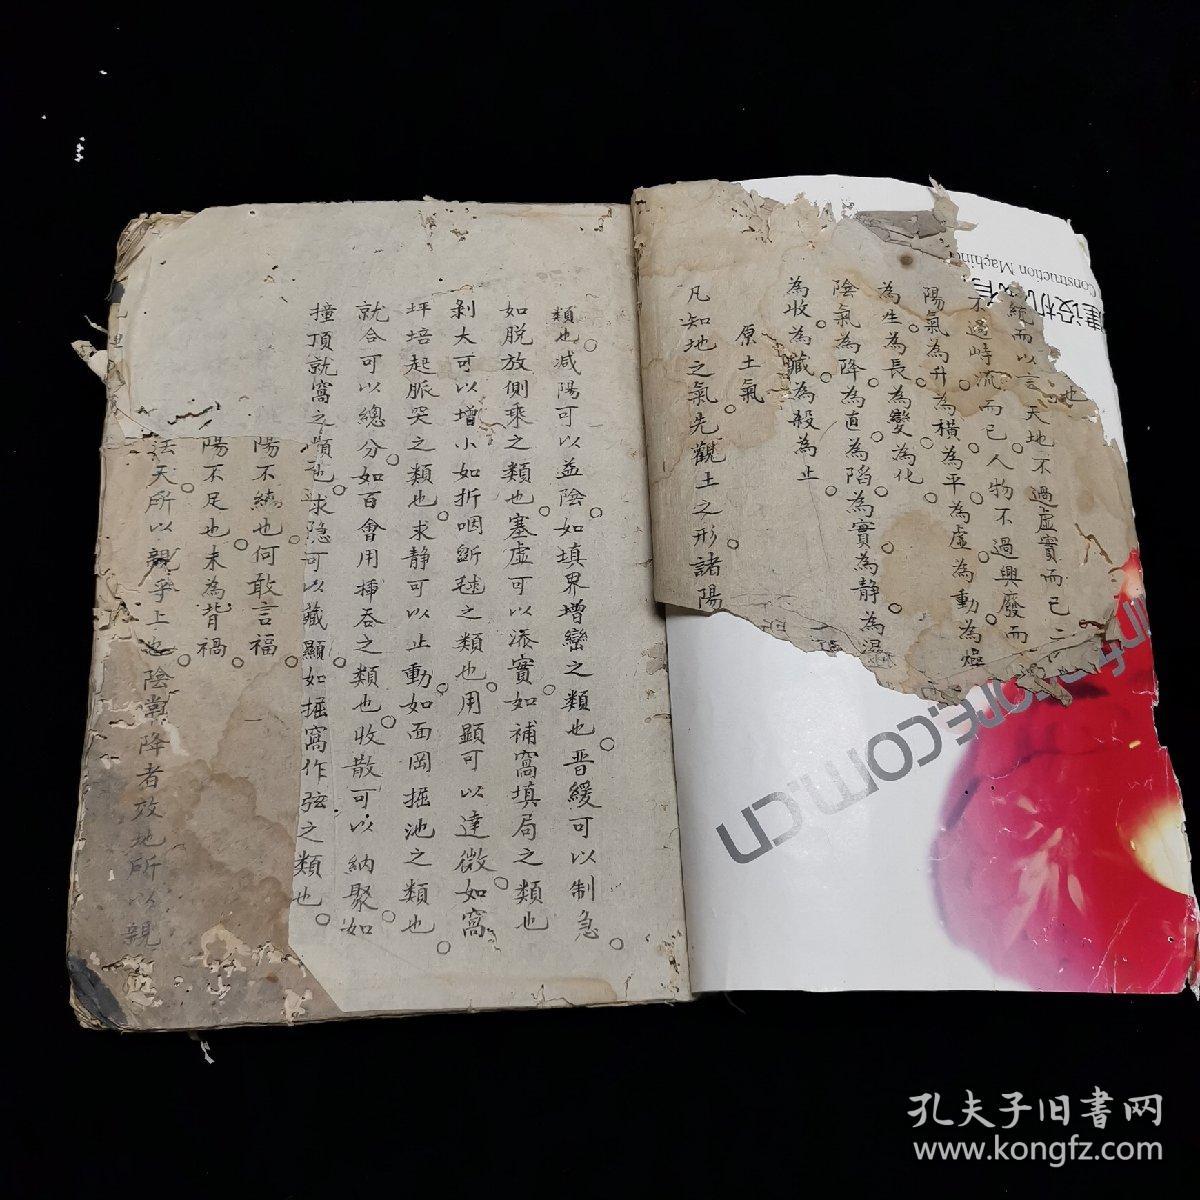 也
統而以言天地不過虛實而已二
不過峙流而已人物不過興廢而
陽氣為升為橫為平為虛為動為燥
為生為長為變為化
陰氣為降為直為陷為實為靜為濕
為收為藏為殺為止
原土氣
凡知地之氣先觀土之形諸陽
類也减陽可以益陰如填界增巒之類也晋緩可以制急
如脱放側乘之類也塞虛可以添實如補窩填局之類也
剥大可以增小如折咽斷毬之類也用顯可以達微如窩
坪培起脈突之類也求静可以止動如面岡掘池之類也
就合可以總分如百會用揷吞之類也收散可以納聚如
撞頂就窩之類也求隐可以藏顯如掘窩作弦之類也
陽不續也何敢言福
陽不足也未為背禍
法天所以親乎上也陰常降者效地所以親
建设机械
Construction Machin
.com.cn
孔夫子旧書网
www.kongfz.com